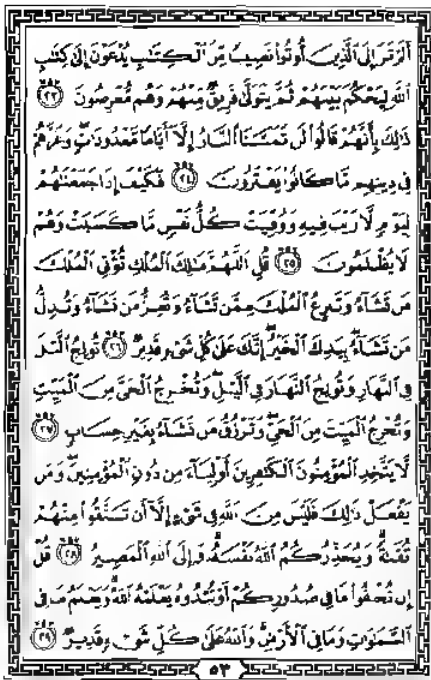 أَلَمْ تَرَ إِلَى ٱلَّذِينَ أُوتُوا۟ نَصِيبًا مِّنَ ٱلْكِتَٰبِ يُدْعَوْنَ إِلَىٰ كِتَٰبِ
ٱللَّهِ لِيَحْكُمَ بَيْنَهُمْ ثُمَّ يَتَوَلَّىٰ فَرِيقٌ مِّنْهُمْ وَهُم مُّعْرِضُونَ ٢٣
ذَٰلِكَ بِأَنَّهُمْ قَالُوا۟ لَن تَمَسَّنَا ٱلنَّارُ إِلَّآ أَيَّامًا مَّعْدُودَٰتٍ وَغَرَّهُمْ
فِى دِينِهِم مَّا كَانُوا۟ يَفْتَرُونَ ٢٤ فَكَيْفَ إِذَا جَمَعْنَٰهُمْ
لِيَوْمٍ لَّا رَيْبَ فِيهِ وَوُفِّيَتْ كُلُّ نَفْسٍ مَّا كَسَبَتْ وَهُمْ
لَا يُظْلَمُونَ ٢٥ قُلِ ٱللَّهُمَّ مَٰلِكَ ٱلْمُلْكِ تُؤْتِى ٱلْمُلْكَ
مَن تَشَآءُ وَتَنزِعُ ٱلْمُلْكَ مِمَّن تَشَآءُ وَتُعِزُّ مَن تَشَآءُ وَتُذِلُّ
مَن تَشَآءُ بِيَدِكَ ٱلْخَيْرُ إِنَّكَ عَلَىٰ كُلِّ شَىْءٍ قَدِيرٌ ٢٦ تُولِجُ ٱلَّيْلَ
فِى ٱلنَّهَارِ وَتُولِجُ ٱلنَّهَارَ فِى ٱلَّيْلِ وَتُخْرِجُ ٱلْحَىَّ مِنَ ٱلْمَيِّتِ
وَتُخْرِجُ ٱلْمَيِّتَ مِنَ ٱلْحَىِّ وَتَرْزُقُ مَن تَشَآءُ بِغَيْرِ حِسَابٍ ٢٧
لَّا يَتَّخِذِ ٱلْمُؤْمِنُونَ ٱلْكَٰفِرِينَ أَوْلِيَآءَ مِن دُونِ ٱلْمُؤْمِنِينَ وَمَن
يَفْعَلْ ذَٰلِكَ فَلَيْسَ مِنَ ٱللَّهِ فِى شَىْءٍ إِلَّآ أَن تَتَّقُوا۟ مِنْهُمْ
تُقَىٰةً وَيُحَذِّرُكُمُ ٱللَّهُ نَفْسَهُۥ وَإِلَى ٱللَّهِ ٱلْمَصِيرُ ٢٨ قُلْ
إِن تُخْفُوا۟ مَا فِى صُدُورِكُمْ أَوْ تُبْدُوهُ يَعْلَمْهُ ٱللَّهُ وَيَعْلَمُ مَا فِى
ٱلسَّمَٰوَٰتِ وَمَا فِى ٱلْأَرْضِ وَٱللَّهُ عَلَىٰ كُلِّ شَىْءٍ قَدِيرٌ ٢٩
٥٣